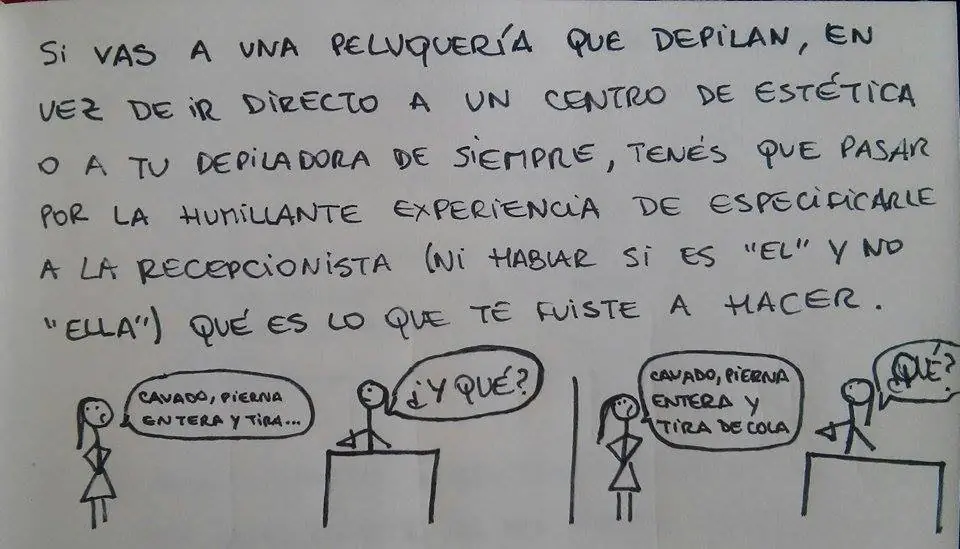 SI VAS A UNA PELUQUERÍA QUE DEPILAN, EN
VEZ DE IR DIRECTO A UN CENTRO DE ESTÉTICA
O A TU DEPILADORA DE SIEMPRE, TENÉS QUE PASAR
POR LA HUMILLANTE EXPERIENCIA DE ESPECIFICARLE
A LA RECEPCIONISTA (NI HABLAR SI ES "EL" Y NO
"ELLA") QUÉ ES LO QUE TE FUISTE A HACER.
CAVADO, PIERNA
ENTERA Y TIRA...
¿Y QUÉ?
CAVADO, PIERNA
ENTERA Y
TIRA DE COLA
¿QUÉ?